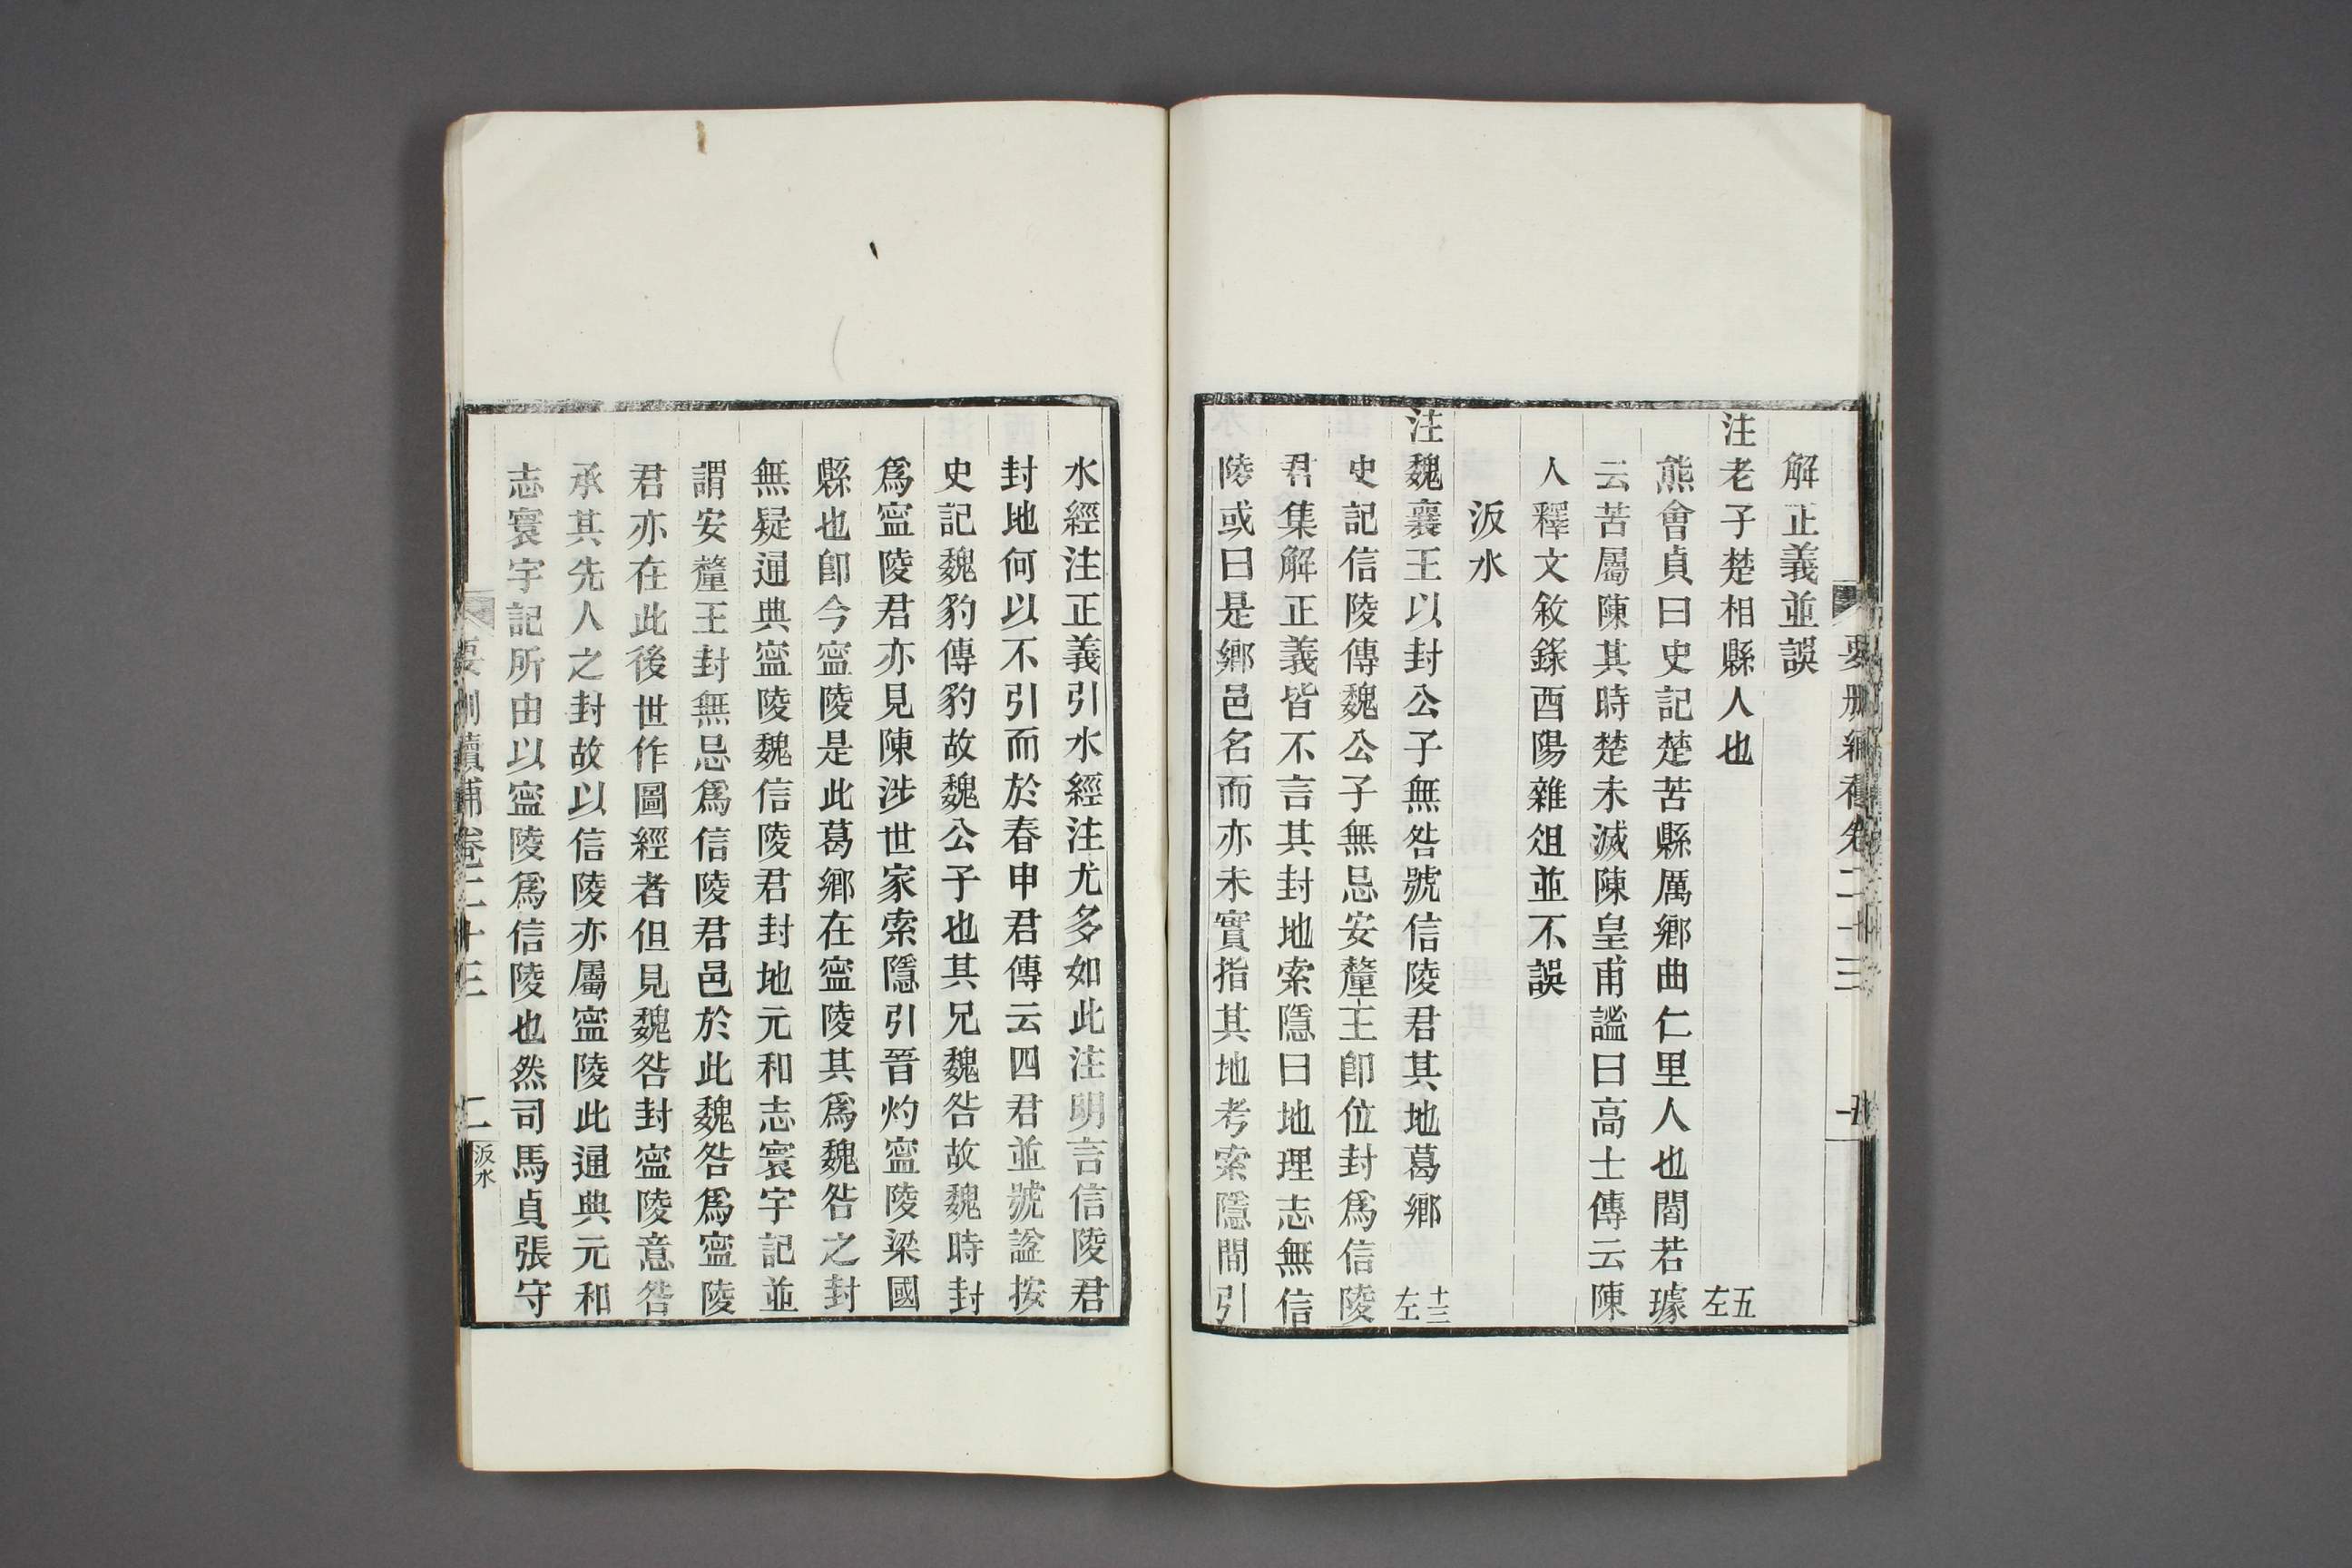 解正義並誤
注老子楚相縣人也 五左
熊會貞曰史記楚苦縣厲鄉曲仁里人也閻若璩
云苦屬陳其時楚未滅陳皇甫謐曰高士傳云陳
人釋文敘錄酉陽雜俎並不誤
汳水
注魏襄王以封公子無咎號信陵君其地葛鄉 十三左
史記信陵傳魏公子無忌安釐王卽位封爲信陵
君集解正義皆不言其封地索隱曰地理志無信
陵或曰是鄉邑名而亦未實指其地考索隱間引
水經注正義引水經注尤多如此注明言信陵君
封地何以不引而於春申君傳云四君並號謚按
史記魏豹傳豹故魏公子也其兄魏咎故魏時封
爲寍陵君亦見陳涉世家索隱引晉灼寍陵梁國
縣也卽今寍陵是此葛鄉在寍陵其爲魏咎之封
無疑通典寍陵魏信陵君封地元和志寰宇記並
謂安釐王封無忌爲信陵君邑於此魏咎爲寍陵
君亦在此後世作圖經者但見魏咎封寍陵意咎
承其先人之封故以信陵亦屬寍陵此通典元和
志寰宇記所由以寍陵爲信陵也然司馬貞張守
要刪續補卷二十三 二 汳水